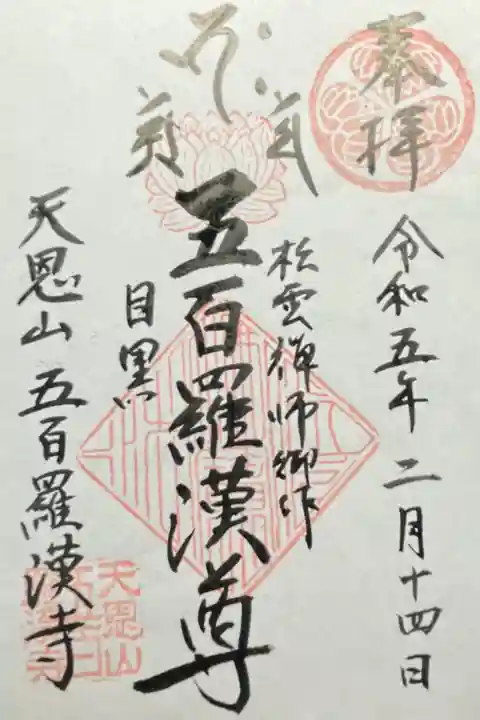 奉拝
令和五年二月十四日
松雲禅師御作
五百羅漢尊
目黒
天恩山 五百羅漢寺
天恩山